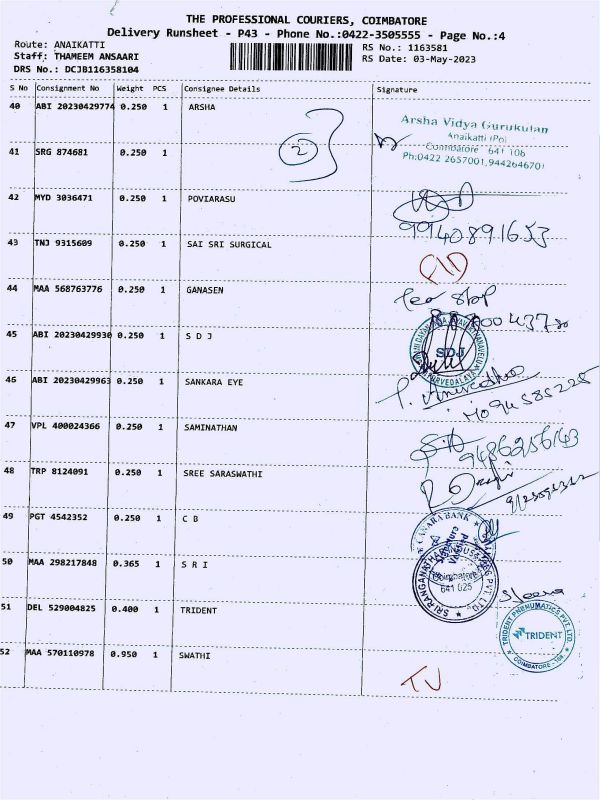 THE PROFESSIONAL COURIERS, COIMBATORE
Delivery Runsheet - P43 - Phone No.:0422-3505555 - Page No.:4
Route: ANAIKATTI
RS No.: 1163581
Staff: THAMEEM ANSAARI
RS Date: 03-May-2023
DRS No.: DCJB116358104
S No Consignment No Weight PCS Consignee Details Signature
40 ABI 20230429774 0.250 1 ARSHA
Arsha Vidya Gurukulan
Anaikatti (Po)
Coimbatore 641 106
Ph:0422 2657001,944264670
2
41 SRG 874681 0.250 1
42 MYD 3036471 0.250 1 POVIARASU
99940891653
43 TNJ 9315609 0.250 1 SAI SRI SURGICAL
44 MAA 568763776 0.250 1 GANASEN
45 ABI 20230429930 0.250 1 S D J
SDJ
46 ABI 20230429963 0.250 1 SANKARA EYE
47 VPL 400024366 0.250 1 SAMINATHAN
9486256143
48 TRP 8124091 0.250 1 SREE SARASWATHI
49 PGT 4542352 0.250 1 C B
CANARA BANK
50 MAA 298217848 0.365 1 S R I
Coimbatore
641 025
51 DEL 529004825 0.400 1 TRIDENT
TRIDENT PNEUMATICS PVT. LTD.
TRIDENT
52 MAA 570110978 0.950 1 SWATHI